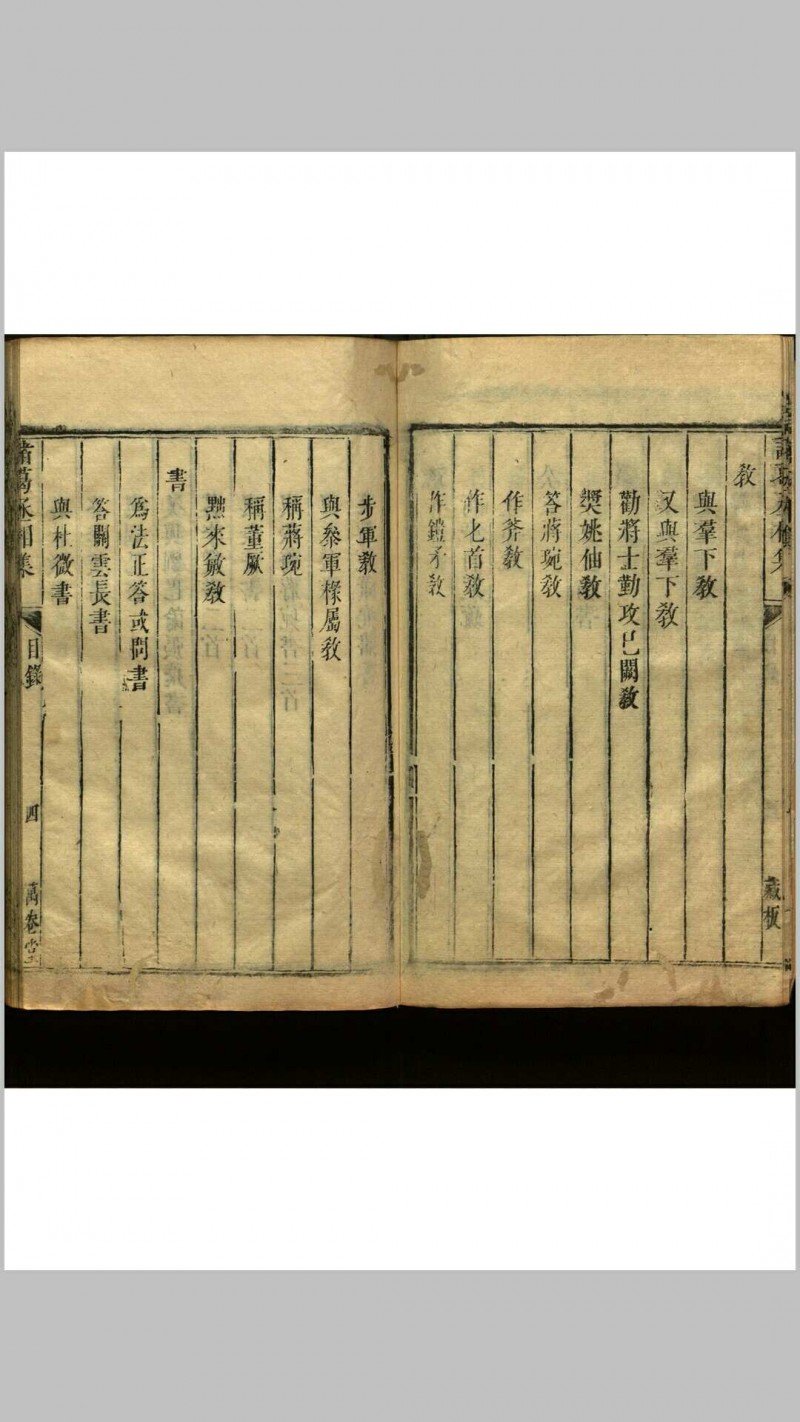 教
與羣下教
又與羣下教
勸將士勤攻已闕教
奬姚伷教
答蔣琬教
作斧教
作匕首教
作鎧矛教
藏板
步軍教
與參軍掾屬教
稱蔣琬
稱董厥
黜來敏教
書
爲法正答或問書
答關雲長書
與杜微書
諸葛丞相集
目錄
四
萬卷堂